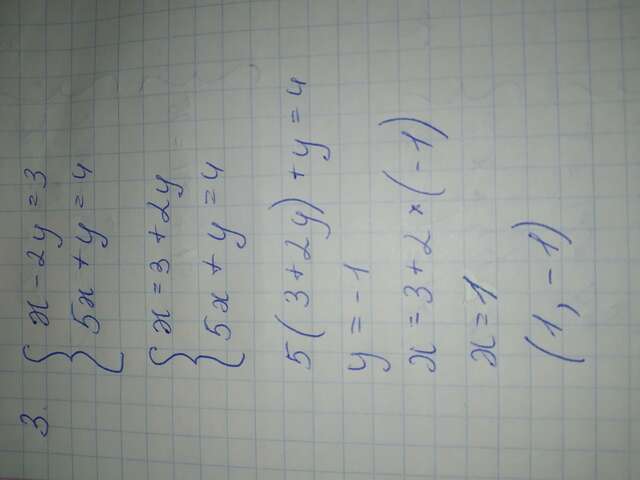 3. { x - 2y = 3
5x + y = 4
{ x = 3 + 2y
5x + y = 4
5(3 + 2y) + y = 4
y = -1
x = 3 + 2 × (-1)
x = 1
(1, -1)